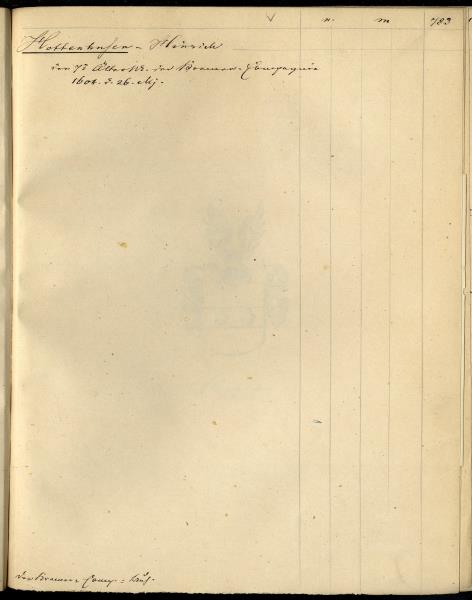 v. n. m 783
Hottenhusen - Hinrich
der 72 Älteste der Brauer-Compagnie
1604. d. 26. Maj.
der Brauer Comp: